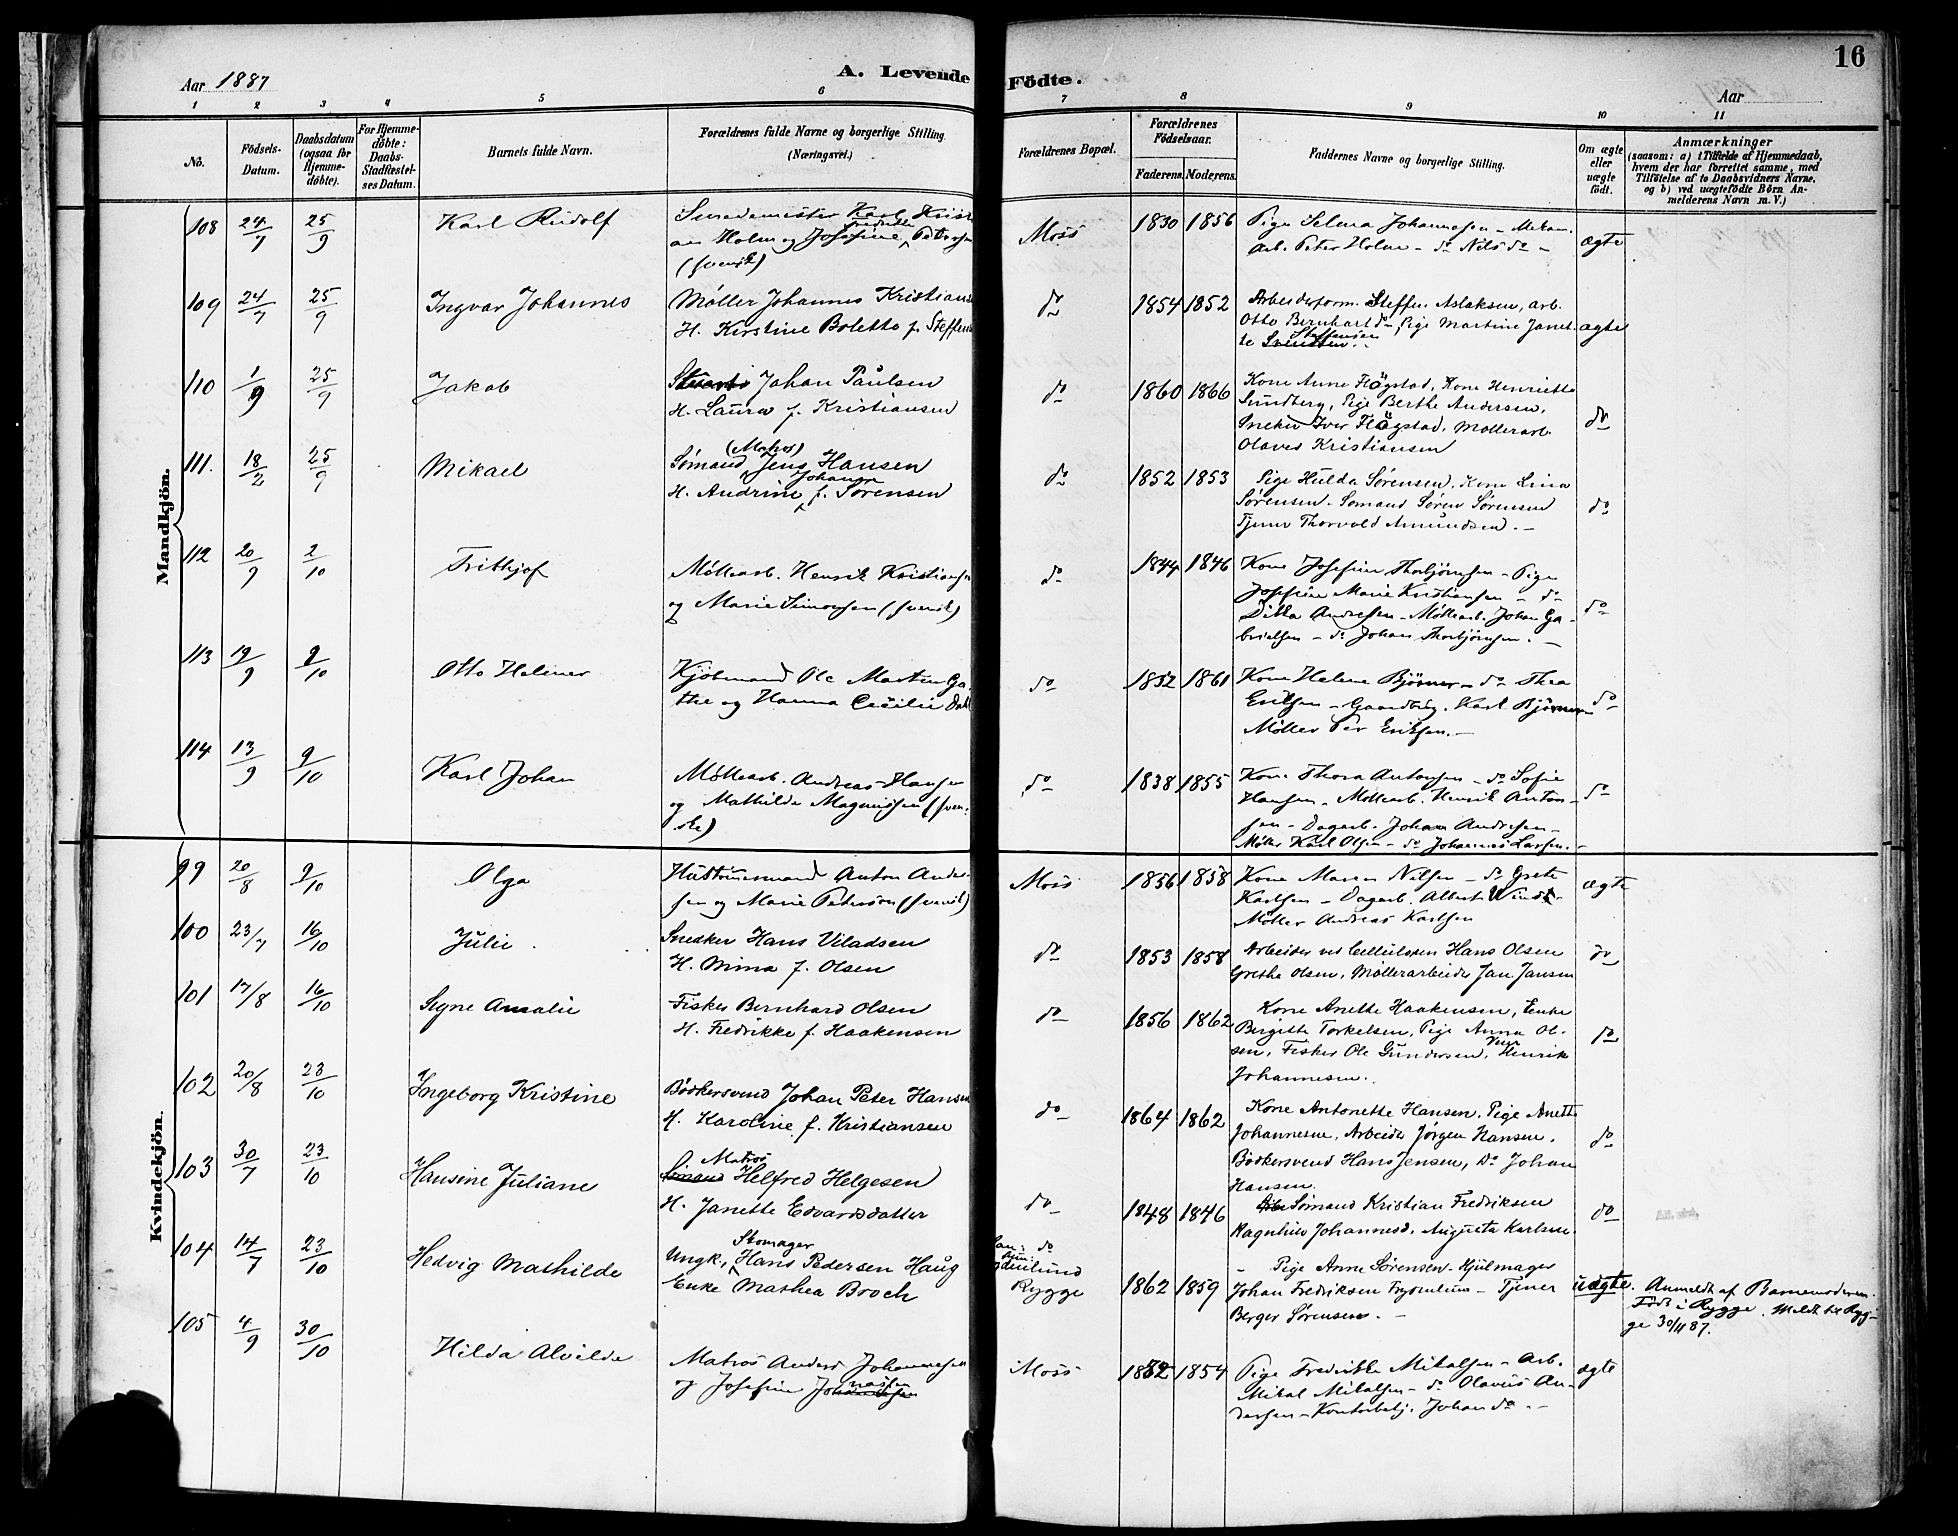 16
Aar 1887
A. Levende Födte.
Aar
1 2 3 4 5 6 7 8 9 10 11
No.
Födsels-
Datum.
Daabsdatum
(ogsaa for
Hjemme-
döbte).
For Hjemme-
döbte:
Daabs-
Stadfæstel-
ses Datum.
Barnets fulde Navn.
Forældrenes fulde Navne og borgerlige Stilling.
(Næringsvei.)
Forældrenes Bopæl.
Forældrenes
Födselsaar.
Faderens. Moderens.
Faddernes Navne og borgerlige Stilling.
Om ægte
eller
uægte
født.
Anmærkninger
(saasom: a) i Tilfælde af Hjemmedaab,
hvem der har forrettet samme, med
Tilföielse af to Daabsvidners Navne,
og b) ved uægtefödte Börn An-
melderens Navn m. V.)
Mandkjön.
108 24/7 25/9 Karl Rudolf
Smedemester Karl Kristi
an Holm og Josefine Fredrikke Petersen
(svensk)
Moss 1830 1856
Pige Selma Johannesen – Mekan.
Arb. Peter Holm – do Nils do –
ægte
109 24/7 25/9 Ingvar Johannes
Møller Johannes Kristians
H. Kirstine Bolette f. Steffens
do 1854 1852
Arbeidsform. Steffen Aslaksen, arb.
Otto Bernhart do, Pige Martine Janet-
te Steffensen
ægte
110 1/9 25/9 Jakob
Johan Paulsen
H. Laura f. Kristiansen
do 1860 1866
Kone Anne Flögstad, Kone Henriette
Sundberg, Pige Berthe Andersen,
Snekker Iver Flögstad, Møllerarb.
Olaves Kristiansen
do
111. 18/2 25/9 Mikael
(Matros)
Sømand Jens Hansen
H. Andrine Johanne f. Sørensen
do 1852 1853
Pige Hulda Sørensen, Kone Lina
Sørensen – Sømand Søren Sørensen
Tjener Thorvald Amundsen. –
do
112 20/9 2/10 Frithjof
Møllearb. Henrik Kristiansen
og Marie Simonsen (svensk)
do 1844 1846
Kone Josefine Thorbjörnsen – Pige
Josefine Marie Kristiansen – do
Ditta Andresen – Møllearb. Johan Ga-
brielsen – do Johan Thorbjörnsen. –
do
113 19/9 9/10 Otto Helmer
Kjöbmand Ole Martin Ga-
the og Hanna Cecilie Dahl
do 1832 1861
Kone Helene Björner – do Thea
Eriksen – Gaardbrg. Karl Björner –
Møller Per Eriksen. –
do
114 13/9 9/10 Karl Johan
Møllearb. Andreas Hansen
og Mathilde Magnussen (sven-
ske)
do 1838 1855
Kone Thora Antonsen – do Sofie
Hansen – Møllearb. Henrik Anton-
sen – Dagarb. Johan Andresen –
Møller Karl Olsen – do Johannes Larsen. –
do
Kvindekjön.
99 20/8 9/10 Olga
Hustömmermand Anton Ander-
sen og Marie Peterson (svensk)
Moss 1856 1858
Kone Maren Nilsen – do Grete
Karlsen – Dagarb. Albert Windt –
Møller Andreas Karlsen
ægte
100 23/7 16/10 Julie
Snedker Hans Viladsen
H. Mina f. Olsen
do 1853 1858
Arbeider ved Cellulosen Hans Olsen
Grethe Olsen, Møllerarbeider Jan Jansen
do
101 17/8 16/10 Signe Amalie
Fisker Bernhard Olsen
H. Fredrikke f. Haakensen
do 1856 1862
Kone Anette Haakensen, Enke
Bergitte Torkelsen, Pige Anna Ol-
sen, Fisker Ole Gundersen, Henrik
Johannesen.
do
102 20/8 23/10 Ingeborg Kristine
Bödkersvend Johan Peter Hansen
H. Karoline f. Kristiansen
do 1864 1862
Kone Antonette Hansen, Pige Anette
Johannesen, Arbeider Jørgen Hansen,
Bödkersvend Hans Jensen, Do Johan
Hansen.
do
103 30/7 23/10 Hansine Juliane
Matros
Sömand Helfred Helgesen
H. Janette Edvardsdatter
do 1848 1846
Sømand Kristian Fredriksen
Ragnhild Johannesd. Augusta Karlsen
do
104 14/7 23/10 Hedvig Mathilde
Skomager
Ungk. Hans Pedersen Haug
Enke Mathea Broch
do
Rygge 1862 1859
– Pige Anne Sørensen – Hjulmager
Johan Fredriksen Frydenlund – Tjener
Berger Sørensen. –
uægte. Anmeldt af Barnemoderen.
Født i Rygge. Meldt til Ryg-
ge 30/11 87.
105 4/9 30/10 Hilda Alvilde
Matros Anders Johannesen
og Josefine
Moss 1854
Pige Fredrikke Mikalsen – Arb.
Mikal Mikalsen – do Olavus An-
dersen – Kontorbetj. Johan do. –
ægte